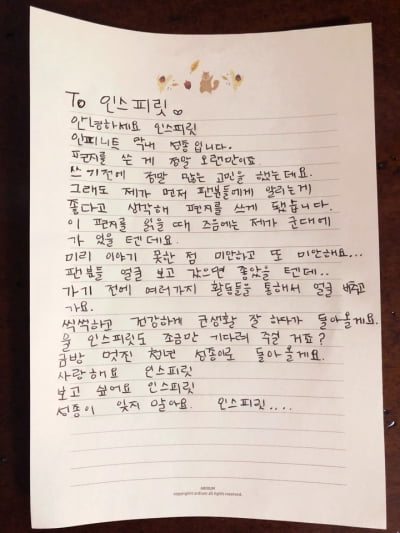 To 인스피릿
안녕하세요 인스피릿
인피니트 막내 성종입니다.
편지를 쓴 게 정말 오랜만이죠
쓰기전에 정말 많은 고민을 했는데요.
그래도 제가 먼저 팬분들에게 알리는게
좋다고 생각해 편지를 쓰게 됐습니다.
이 편지를 읽을 때 즈음에는 제가 군대에
가 있을 텐데요.
미리 이야기 못한 점 미안하고 또 미안해요...
팬분들 얼굴 보고 갔으면 좋았을 텐데..
가기 전에 여러가지 활동들을 통해서 얼굴 비추고
가요.
씩씩하고 건강하게 군생활 잘 하다가 돌아올게요.
울 인스피릿도 조금만 기다려 주실 거죠?
금방 멋진 청년 성종이로 돌아올게요.
사랑해요 인스피릿
보고 싶어요 인스피릿
성종이 잊지 말아요. 인스피릿....
ARDIUM
copyright© ardium all rights reserved.